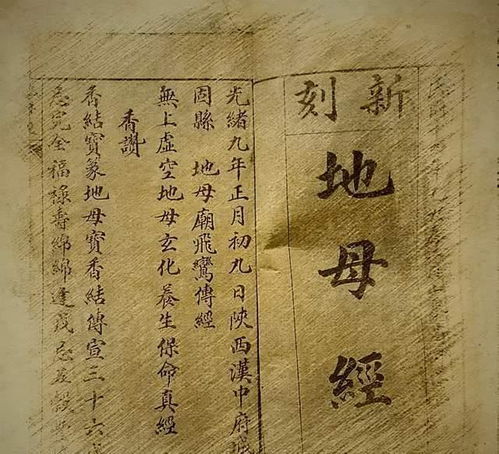 新刻
地母經
光緒九年正月初九日陝西漢中府城
固縣 地母廟飛鸞傳經
無上虛空地母玄化養生保命真經
香讚
香結寶象地母寶香結傳宣三十六
忌完全福祿壽綿綿逢戊忌五穀